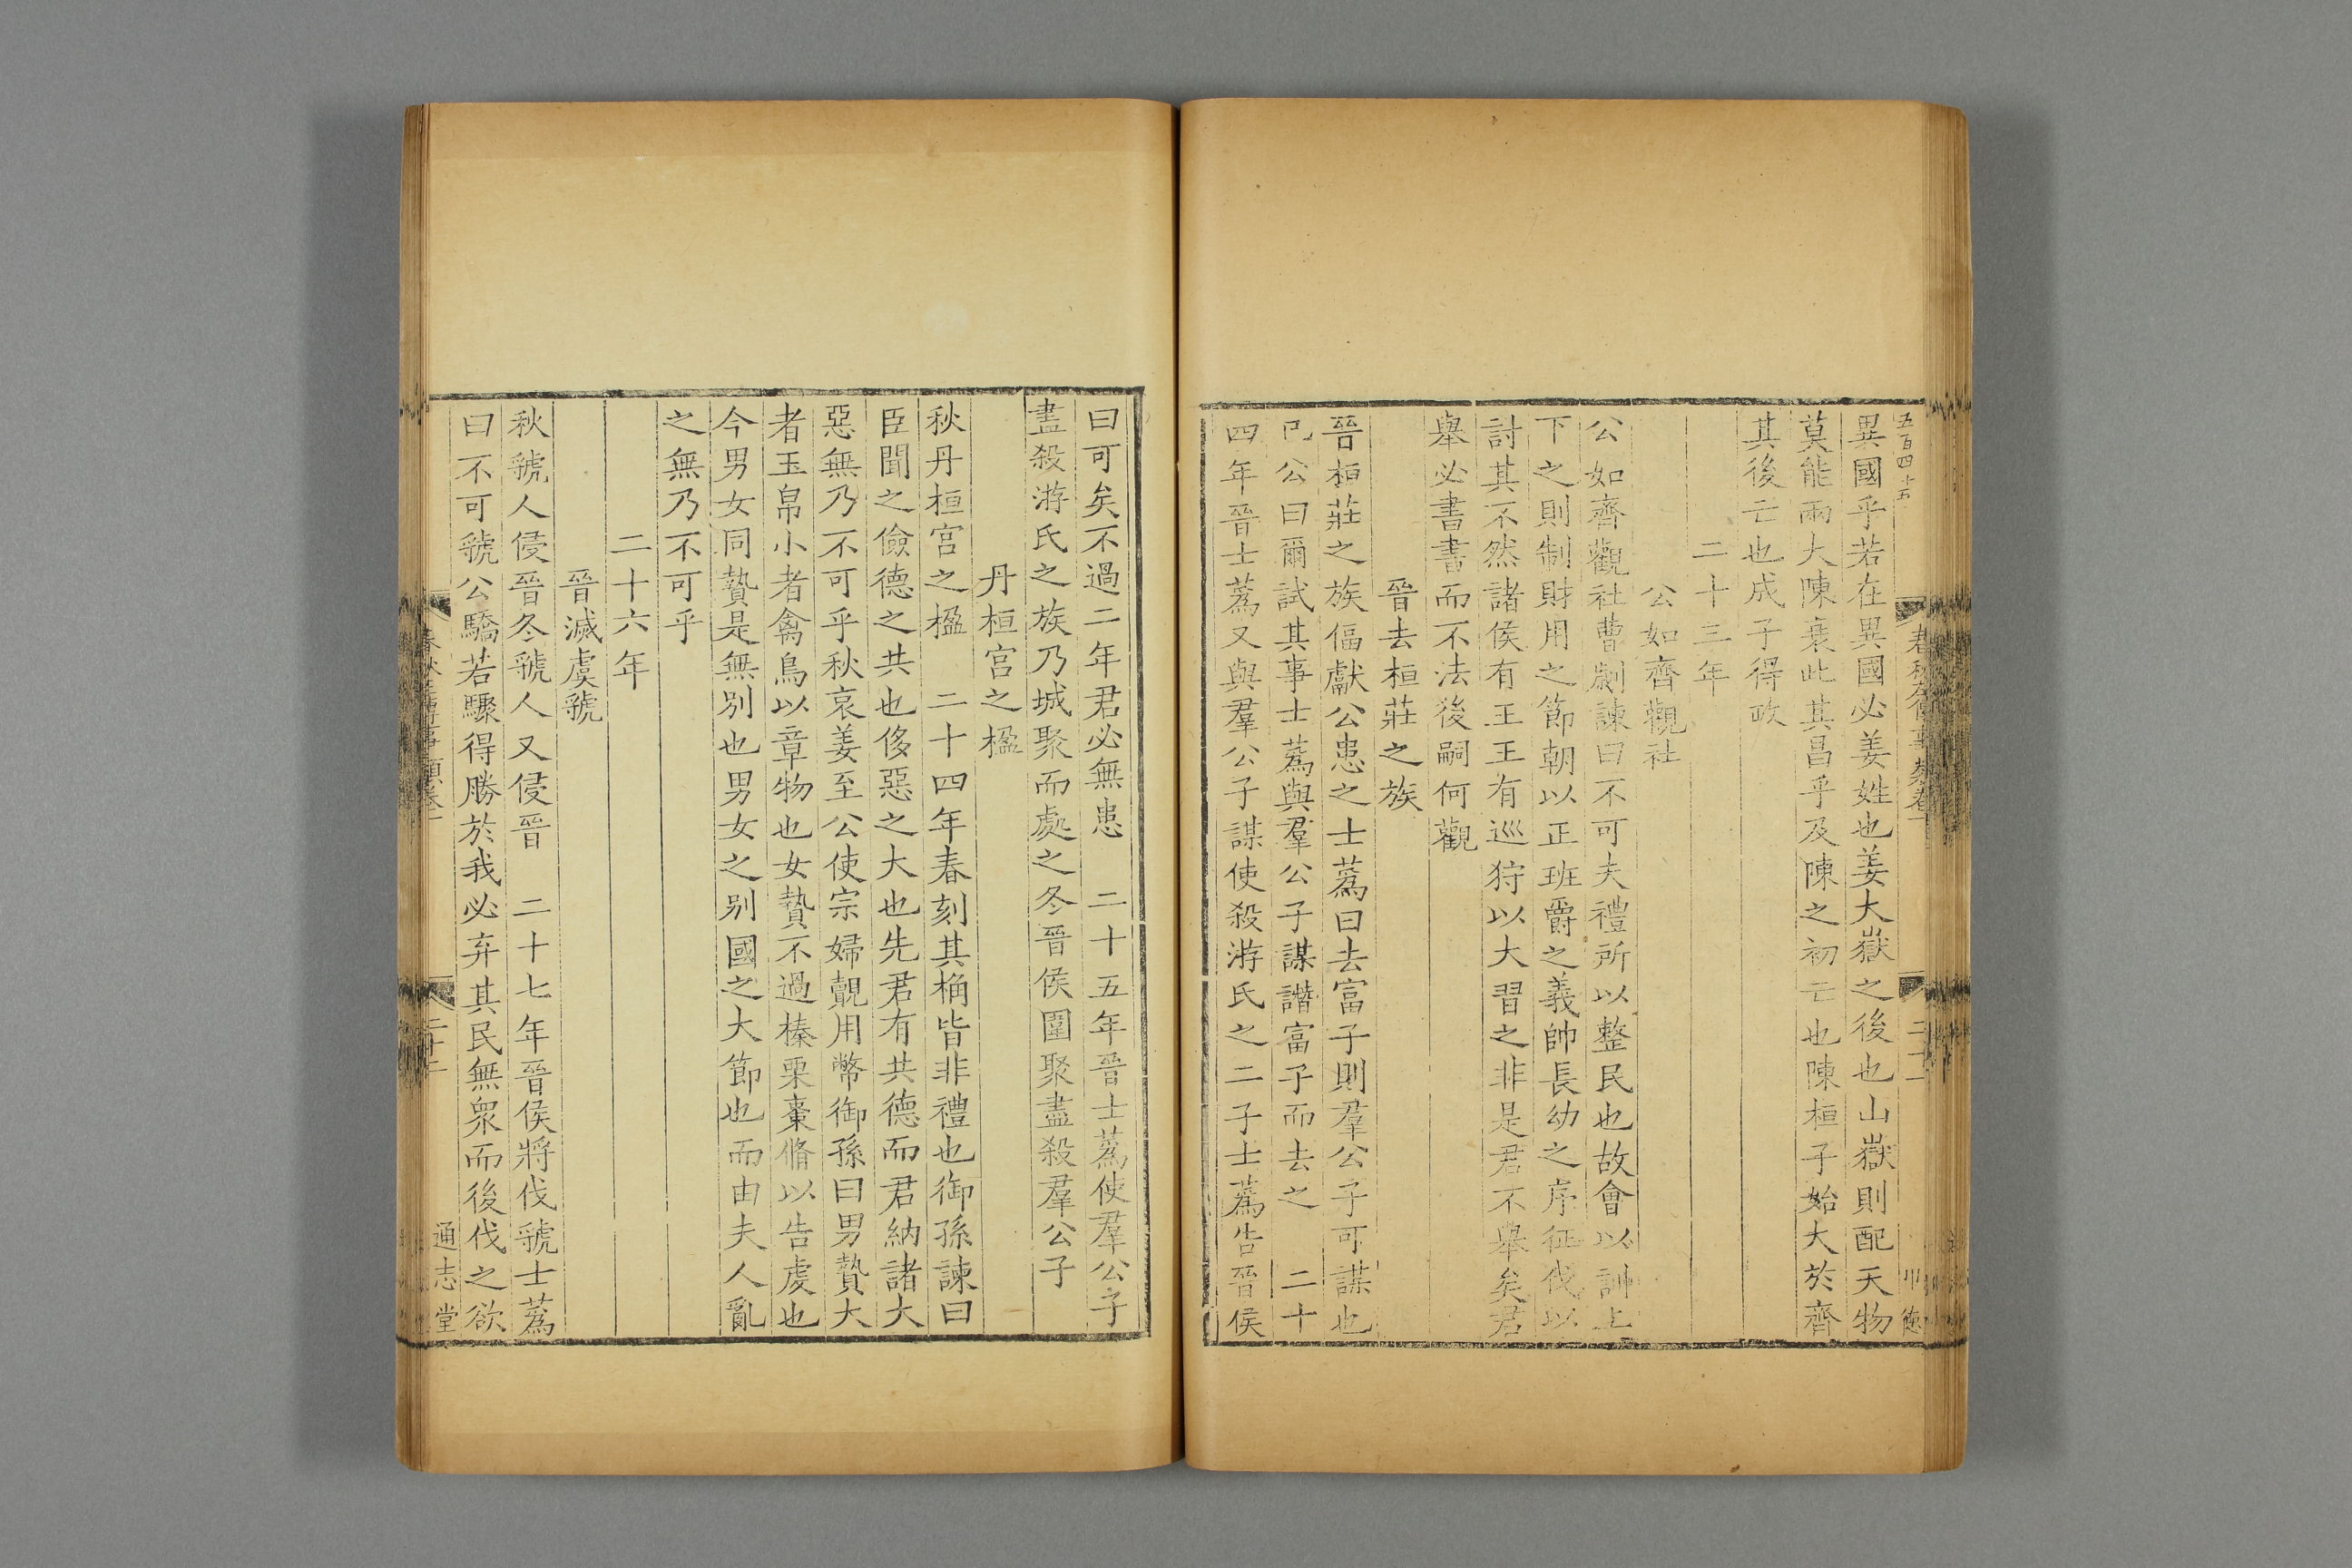 五百四十五
異國乎若在異國必姜姓也姜大嶽之後也山嶽則配天物
莫能兩大陳衰此其昌乎及陳之初亡也陳桓子始大於齊
其後亡也成子得政
二十三年
公如齊觀社
公如齊觀社曹劌諫曰不可夫禮所以整民也故會以訓上
下之則制財用之節朝以正班爵之義帥長幼之序征伐以
討其不然諸侯有王王有巡狩以大習之非是君不舉矣君
舉必書書而不法後嗣何觀
晉去桓莊之族
晉桓莊之族偪獻公患之士蒍曰去富子則羣公子可謀也
已公曰爾試其事士蒍與羣公子謀譖富子而去之 二十
四年晉士蒍又與羣公子謀使殺游氏之二子士蒍告晉侯
曰可矣不過二年君必無患 二十五年晉士蒍使羣公子
盡殺游氏之族乃城聚而處之冬晉侯圍聚盡殺羣公子
丹桓宮之楹
秋丹桓宮之楹 二十四年春刻其桷皆非禮也御孫諫曰
臣聞之儉德之共也侈惡之大也先君有共德而君納諸大
惡無乃不可乎秋哀姜至公使宗婦覿用幣御孫曰男贄大
者玉帛小者禽鳥以章物也女贄不過榛栗棗脩以告虔也
今男女同贄是無別也男女之別國之大節也而由夫人亂
之無乃不可乎
二十六年
晉滅虞虢
秋虢人侵晉冬虢人又侵晉 二十七年晉侯將伐虢士蒍
曰不可虢公驕若驟得勝於我必弃其民無眾而後伐之欲
通志堂